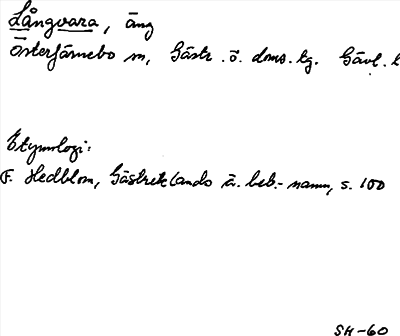 Långvara, äng
Österfärnebo sn, Gästr. ö. doms. tg. Gävl. l
Etymologi:
F. Hedblom, Gästriklands ä. beb.-namn, s. 100
SH-60